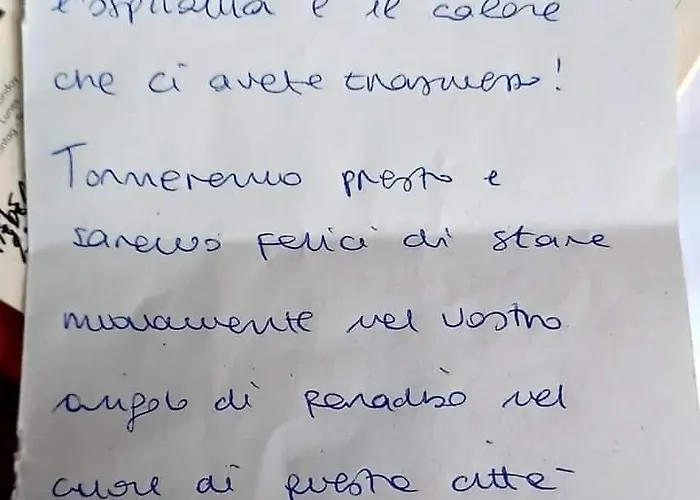 l'ospitalità e il calore
che ci avete trasmesso!
Torneremo presto e
saremo felici di stare
nuovamente nel vostro
angolo di paradiso nel
cuore di questa città